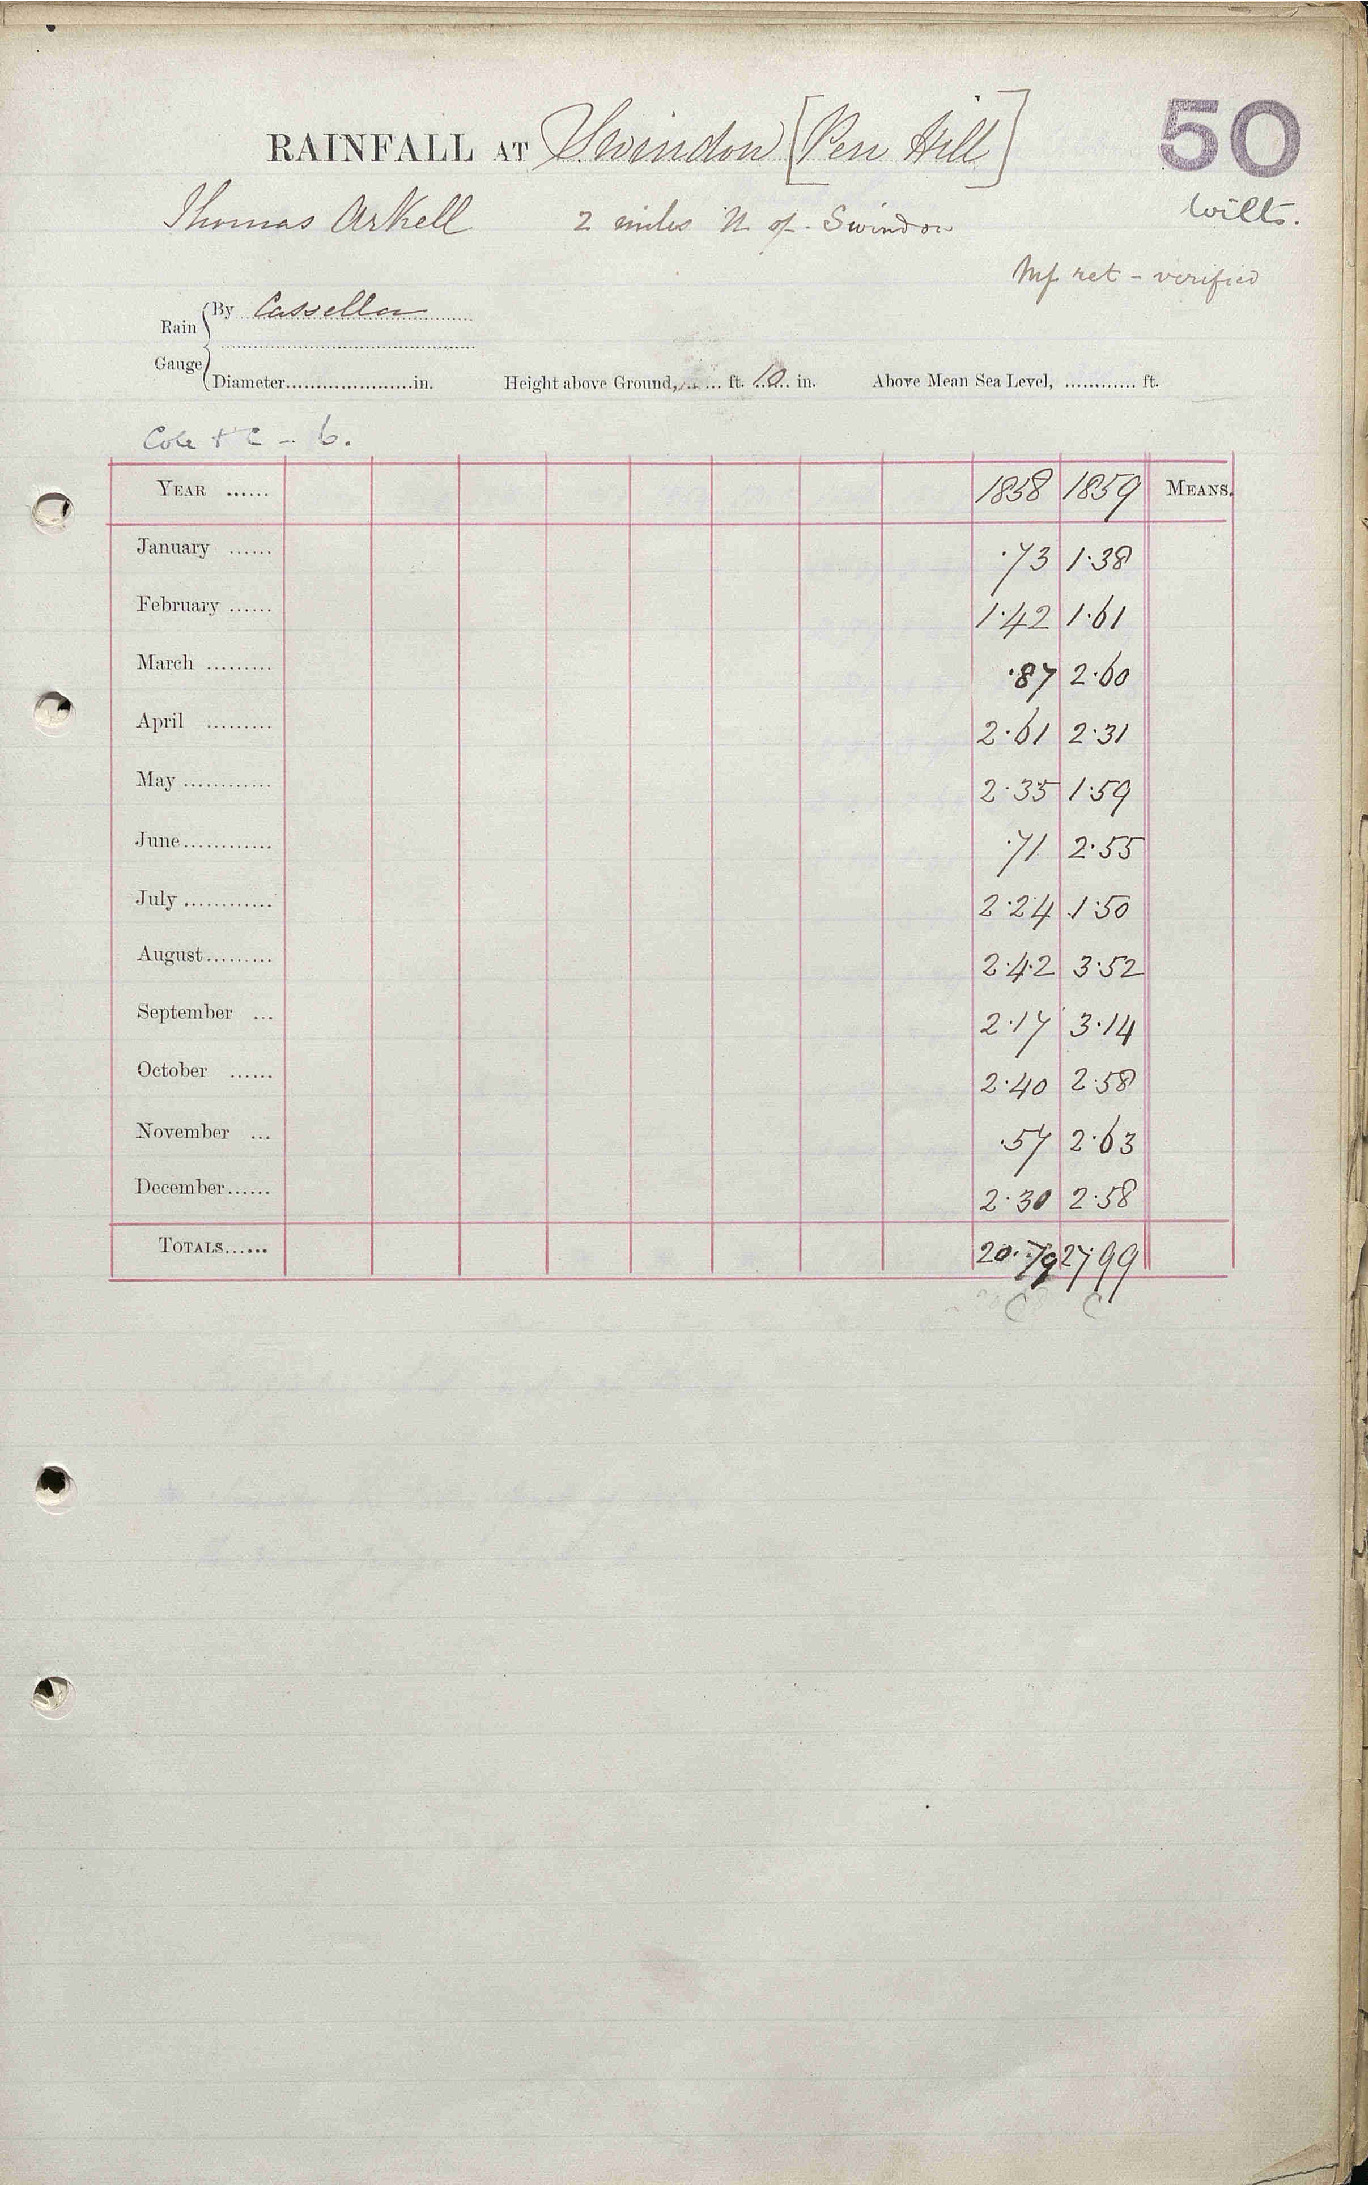 RAINFALL AT Swindon [Pen Hill] 50
Thomas Arkell 2 miles N of Swindon Wilts.
ret - verified
Rain Gauge { By Cassella
Diameter.....................in. Height above Ground, ...... ft. 10 in. Above Mean Sea Level, ............ ft.
6.
YEAR ...... 1858 1859 MEANS.
January ...... .73 1.38
February ...... 1.42 1.61
March ......... .87 2.60
April ......... 2.61 2.31
May ............ 2.35 1.59
June............ .71 2.55
July ............ 2.24 1.50
August......... 2.42 3.52
September ... 2.17 3.14
October ...... 2.40 2.58
November ... .57 2.63
December...... 2.30 2.58
TOTALS...... 20.79 27.99
C C